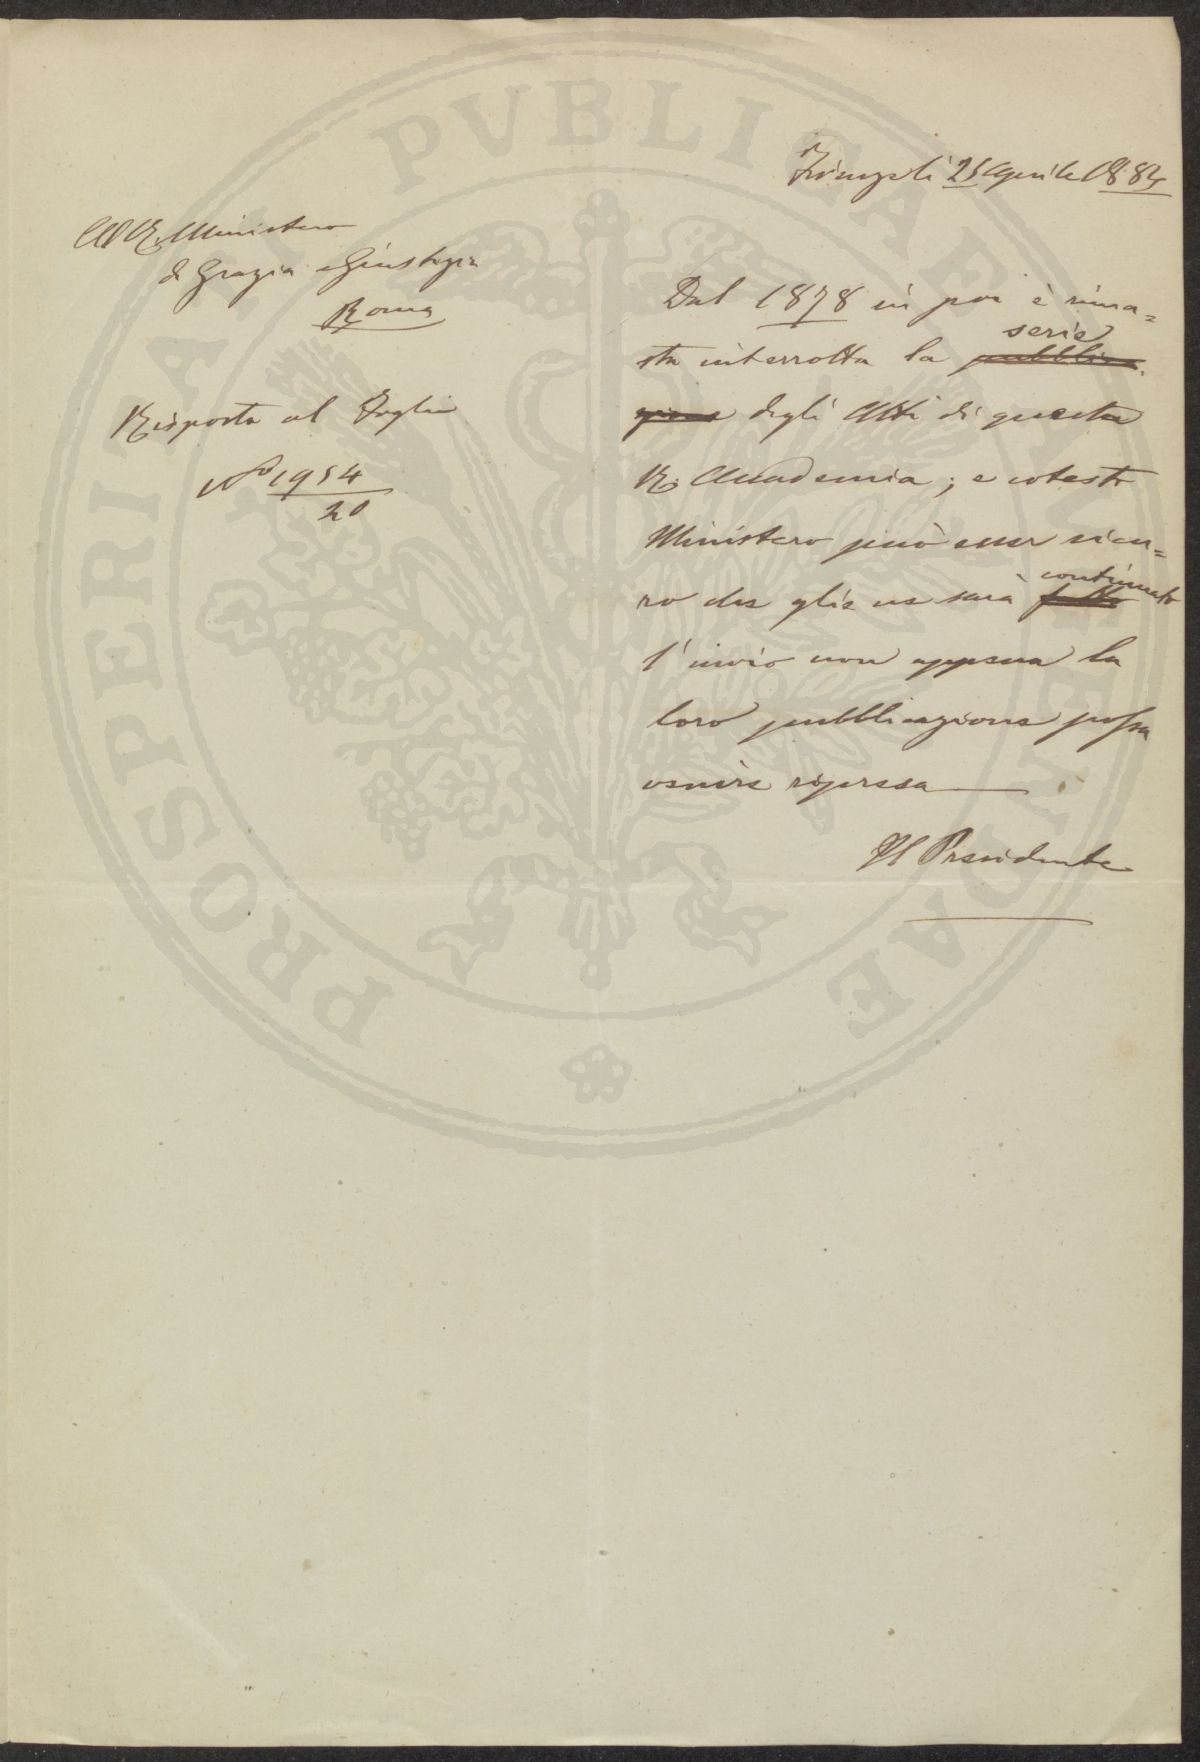 Firenze li 25 Aprile 1884
Al R. Ministero
di Grazia e Giustizia
Roma
Risposta al Foglio
N° 1954
20
Dal 1878 in poi è rima=
sta interrotta la pubblica- serie
zione degli Atti di questa
R. Accademia; e cotesto
Ministero può esser sicu=
ro che glie ne sarà fatto continuato
l'invio non appena la
loro pubblicazione possa
venire ripresa
Il Presidente
PROSPERITATI PVBLICAE AVGENDAE